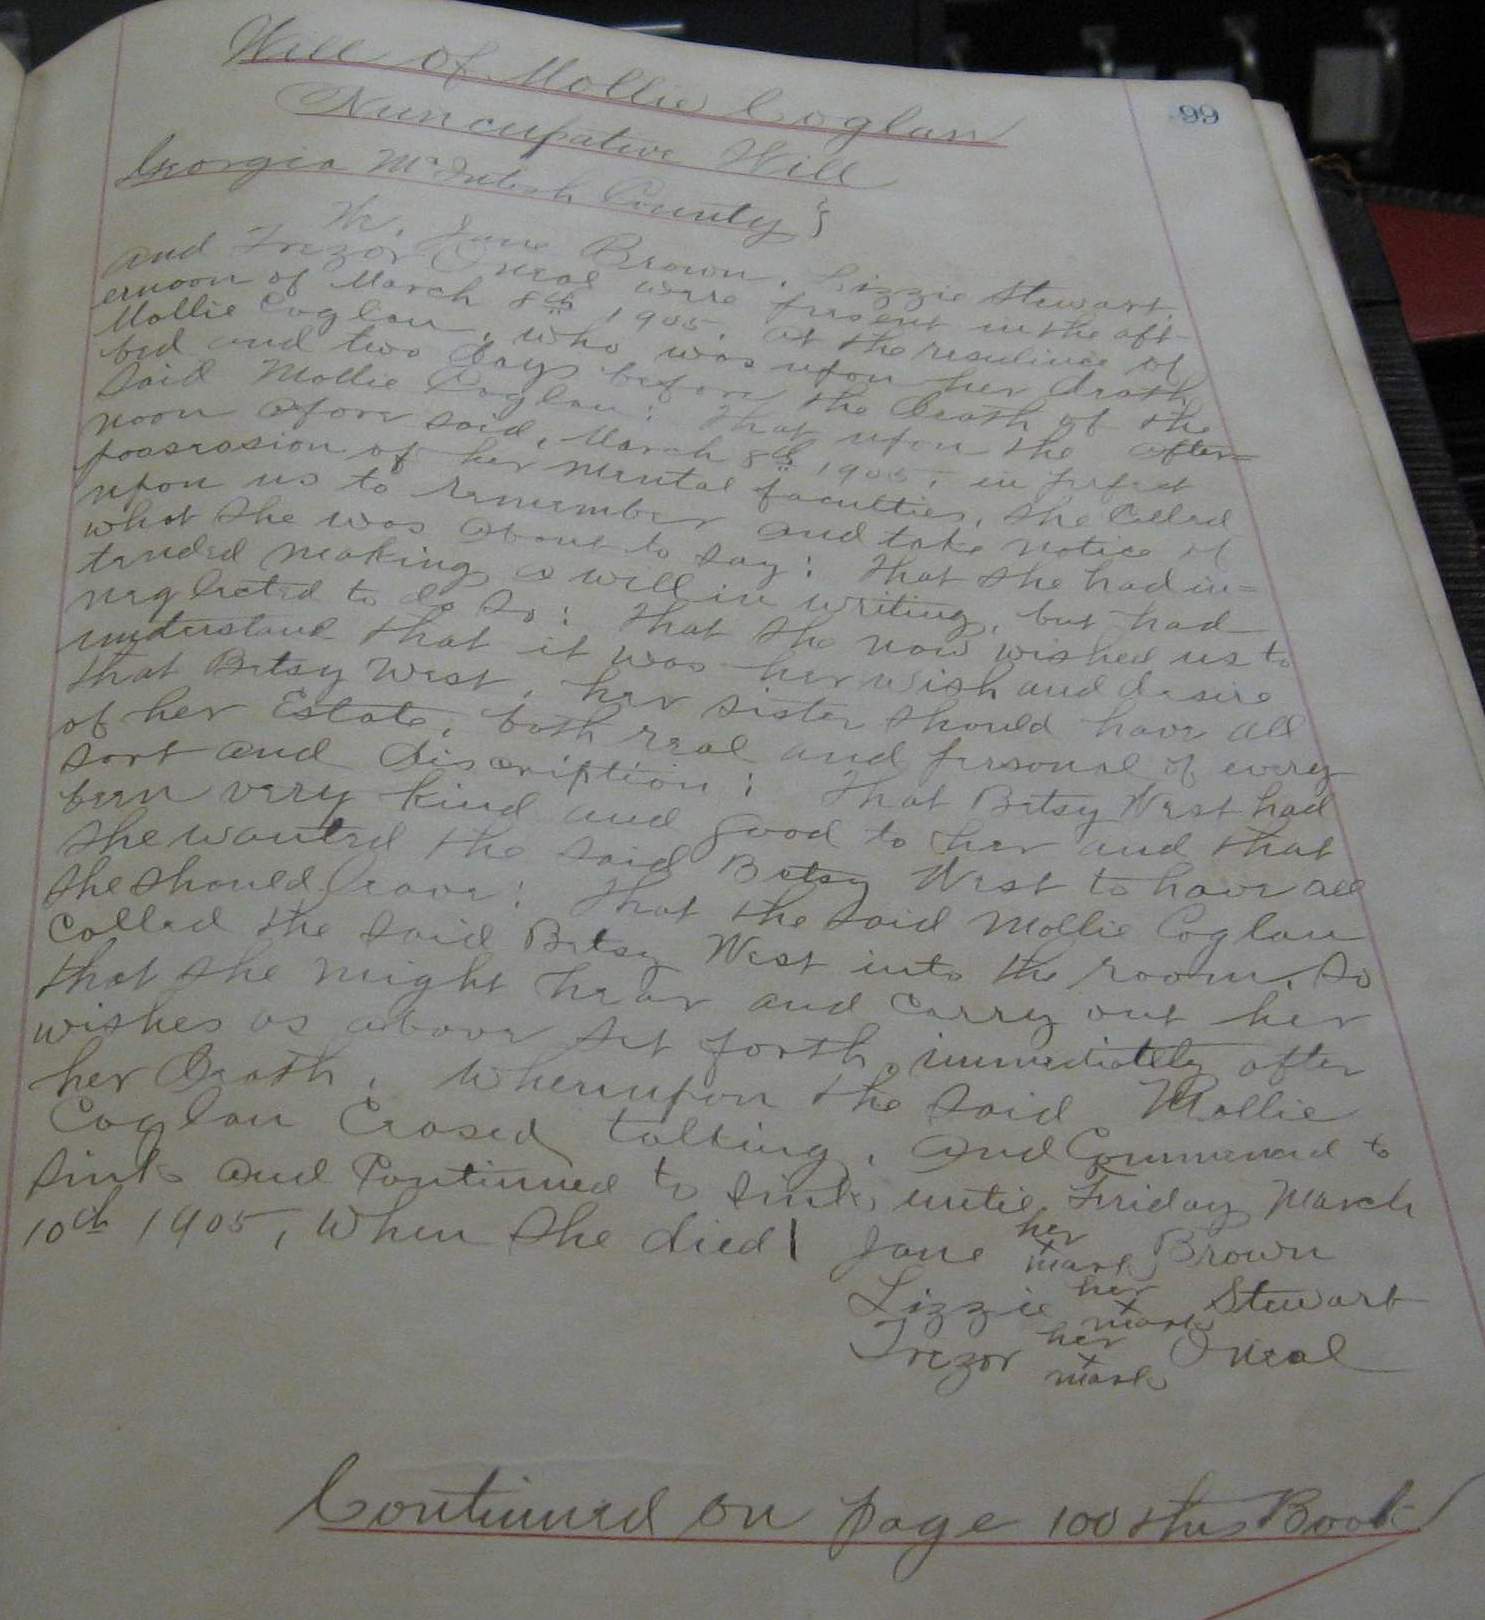 Will of Mollie Coglan
99
Nuncupative Will
Georgia McIntosh County }
We, Jane Brown, Lizzie Stewart,
and Trezor Oneal were present in the aft-
ernoon of March 8th 1905, at the residence of
Mollie Coglan, who was upon her death
bed and two days before the death of the
said Mollie Coglan: That upon the after=
noon afore said, March 8th 1905, in perfect
possession of her mental faculties, she called
upon us to remember and take notice of
what she was about to say: That she had in=
tended making a will in writing, but had
neglected to do so: That she now wished us to
understand that it was her wish and desire
that Betsy West, her sister should have all
of her Estate, both real and personal of every
sort and discription: That Betsy West had
been very kind and good to her and that
she wanted the said Betsy West to have all
she should leave: That the said Mollie Coglan
called the said Betsy West into the room, so
that she might hear and carry out her
wishes as above set forth, immediately after
her Death, Whereupon the said Mollie
Coglan Ceased talking, and Commenced to
sink and Continued to sink until Friday March
10th 1905, When she died | Jane her x mark Brown
Lizzie her x mark Stewart
Trezor her x mark Oneal
Continued on page 100 this Book